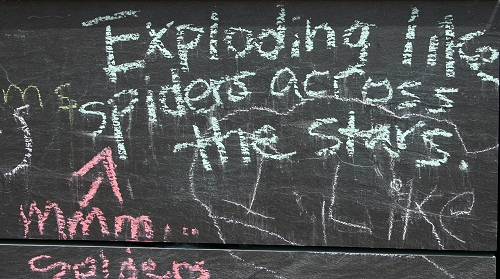 Exploding like
spiders across
the stars.
I LIKE
mmm...
Spiders